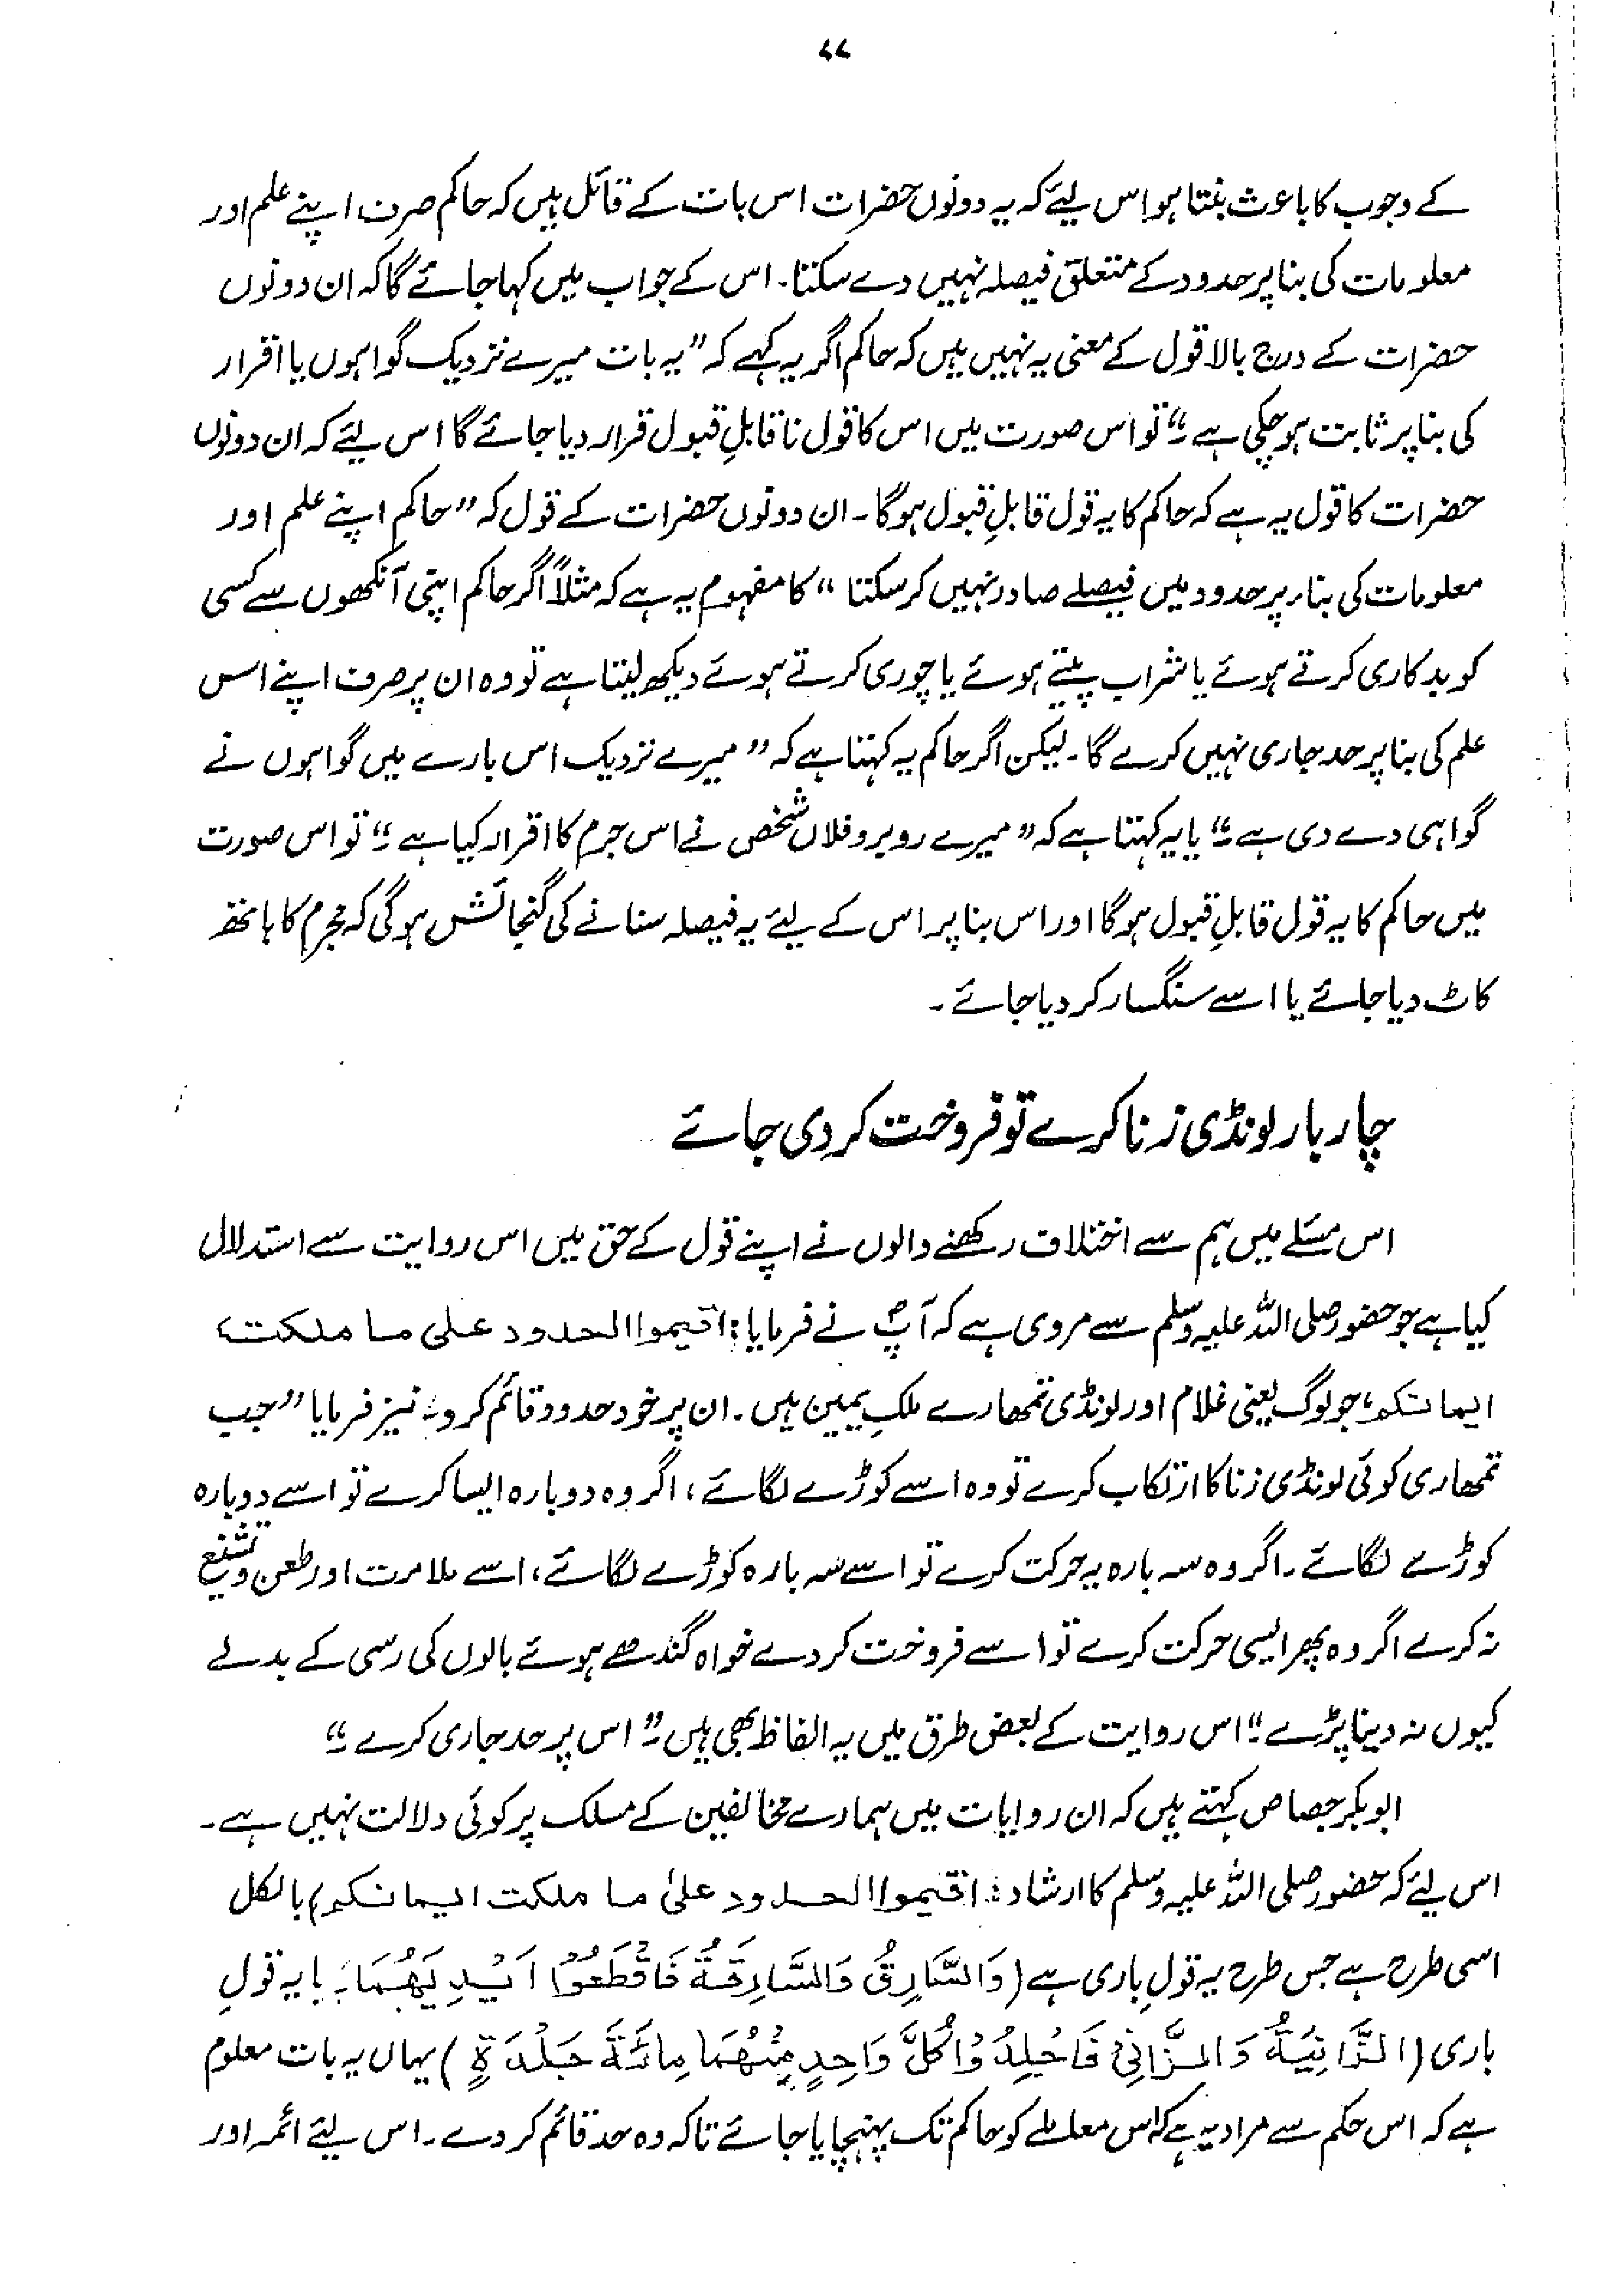 ۷۷
کے وجوب کا باعث بنتا ہو اس لیئے کہ یہ دونوں حضرات اس بات کے قائل ہیں کہ حاکم صرف اپنے علم اور
معلومات کی بنا پر حدود کے متعلق فیصلہ نہیں دے سکتا۔ اس کے جواب میں کہا جائے گا کہ ان دونوں
حضرات کے درج بالا قول کے معنی یہ نہیں ہیں کہ حاکم اگر یہ کہے کہ ”یہ بات میرے نزدیک گواہوں یا اقرار
کی بنا پر ثابت ہو چکی ہے۔“ تو اس صورت میں اس کا قول ناقابلِ قبول قرار دیا جائے گا اس لیئے کہ ان دونوں
حضرات کا قول یہ ہے کہ حاکم کا یہ قول قابلِ قبول ہوگا۔ ان دونوں حضرات کے قول کہ ”حاکم اپنے علم اور
معلومات کی بناء پر حدود میں فیصلے صادر نہیں کر سکتا“ کا مفہوم یہ ہے کہ مثلاً اگر حاکم اپنی آنکھوں سے کسی
کو بدکاری کرتے ہوئے یا شراب پیتے ہوئے یا چوری کرتے ہوئے دیکھ لیتا ہے تو وہ ان پر صرف اپنے اس
علم کی بنا پر حد جاری نہیں کرے گا۔ لیکن اگر حاکم یہ کہتا ہے کہ ”میرے نزدیک اس بارے میں گواہوں نے
گواہی دے دی ہے۔“ یا یہ کہتا ہے کہ ”میرے روبرو فلاں شخص نے اس جرم کا اقرار کیا ہے۔“ تو اس صورت
میں حاکم کا یہ قول قابلِ قبول ہوگا اور اس بنا پر اس کے لیئے یہ فیصلہ سنانے کی گنجائش ہوگی کہ مجرم کا ہاتھ
کاٹ دیا جائے یا اسے سنگسار کر دیا جائے۔
چار بار لونڈی زنا کرے تو فروخت کر دی جائے
اس مسئلے میں ہم سے اختلاف رکھنے والوں نے اپنے قول کے حق میں اس روایت سے استدلال
کیا ہے جو حضور صلی اللہ علیہ وسلم سے مروی ہے کہ آپؐ نے فرمایا: اقیموا الحدود علی ما ملکت
ایمانکم، جو لوگ یعنی غلام اور لونڈی تمھارے ملکِ یمین ہیں۔ ان پر خود حدود قائم کرو۔ نیز فرمایا ”جب
تمھاری کوئی لونڈی زنا کا ارتکاب کرے تو وہ اسے کوڑے لگائے، اگر وہ دوبارہ ایسا کرے تو اسے دوبارہ
کوڑے لگائے۔ اگر وہ سہ بارہ یہ حرکت کرے تو اسے سہ بارہ کوڑے لگائے، اسے ملامت اور طعن و تشنیع
نہ کرے اگر وہ پھر ایسی حرکت کرے تو اسے فروخت کر دے خواہ گندھے ہوئے بالوں کی رسی کے بدلے
کیوں نہ دینا پڑے۔“ اس روایت کے بعض طرق میں یہ الفاظ بھی ہیں۔ ”اس پر حد جاری کرے۔“
ابوبکر جصاص کہتے ہیں کہ ان روایات میں ہمارے مخالفین کے مسلک پر کوئی دلالت نہیں ہے۔
اس لیئے کہ حضور صلی اللہ علیہ وسلم کا ارشاد: اقیموا الحدود علیٰ ما ملکت ایمانکم) بالکل
اسی طرح ہے جس طرح یہ قولِ باری ہے (وَالسَّارِقُ وَالسَّارِقَةُ فَاقْطَعُوْا اَيْدِيَهُمَا۔ یا یہ قولِ
باری (الزَّانِيَةُ وَالزَّانِىْ فَاجْلِدُوْا كُلَّ وَاحِدٍ مِنْهُمَا مِائَةَ جَلْدَةٍ) یہاں یہ بات معلوم
ہے کہ اس حکم سے مراد یہ ہے کہ اس معاملے کو حاکم تک پہنچایا جائے تاکہ وہ حد قائم کر دے۔ اس لیئے ائمہ اور